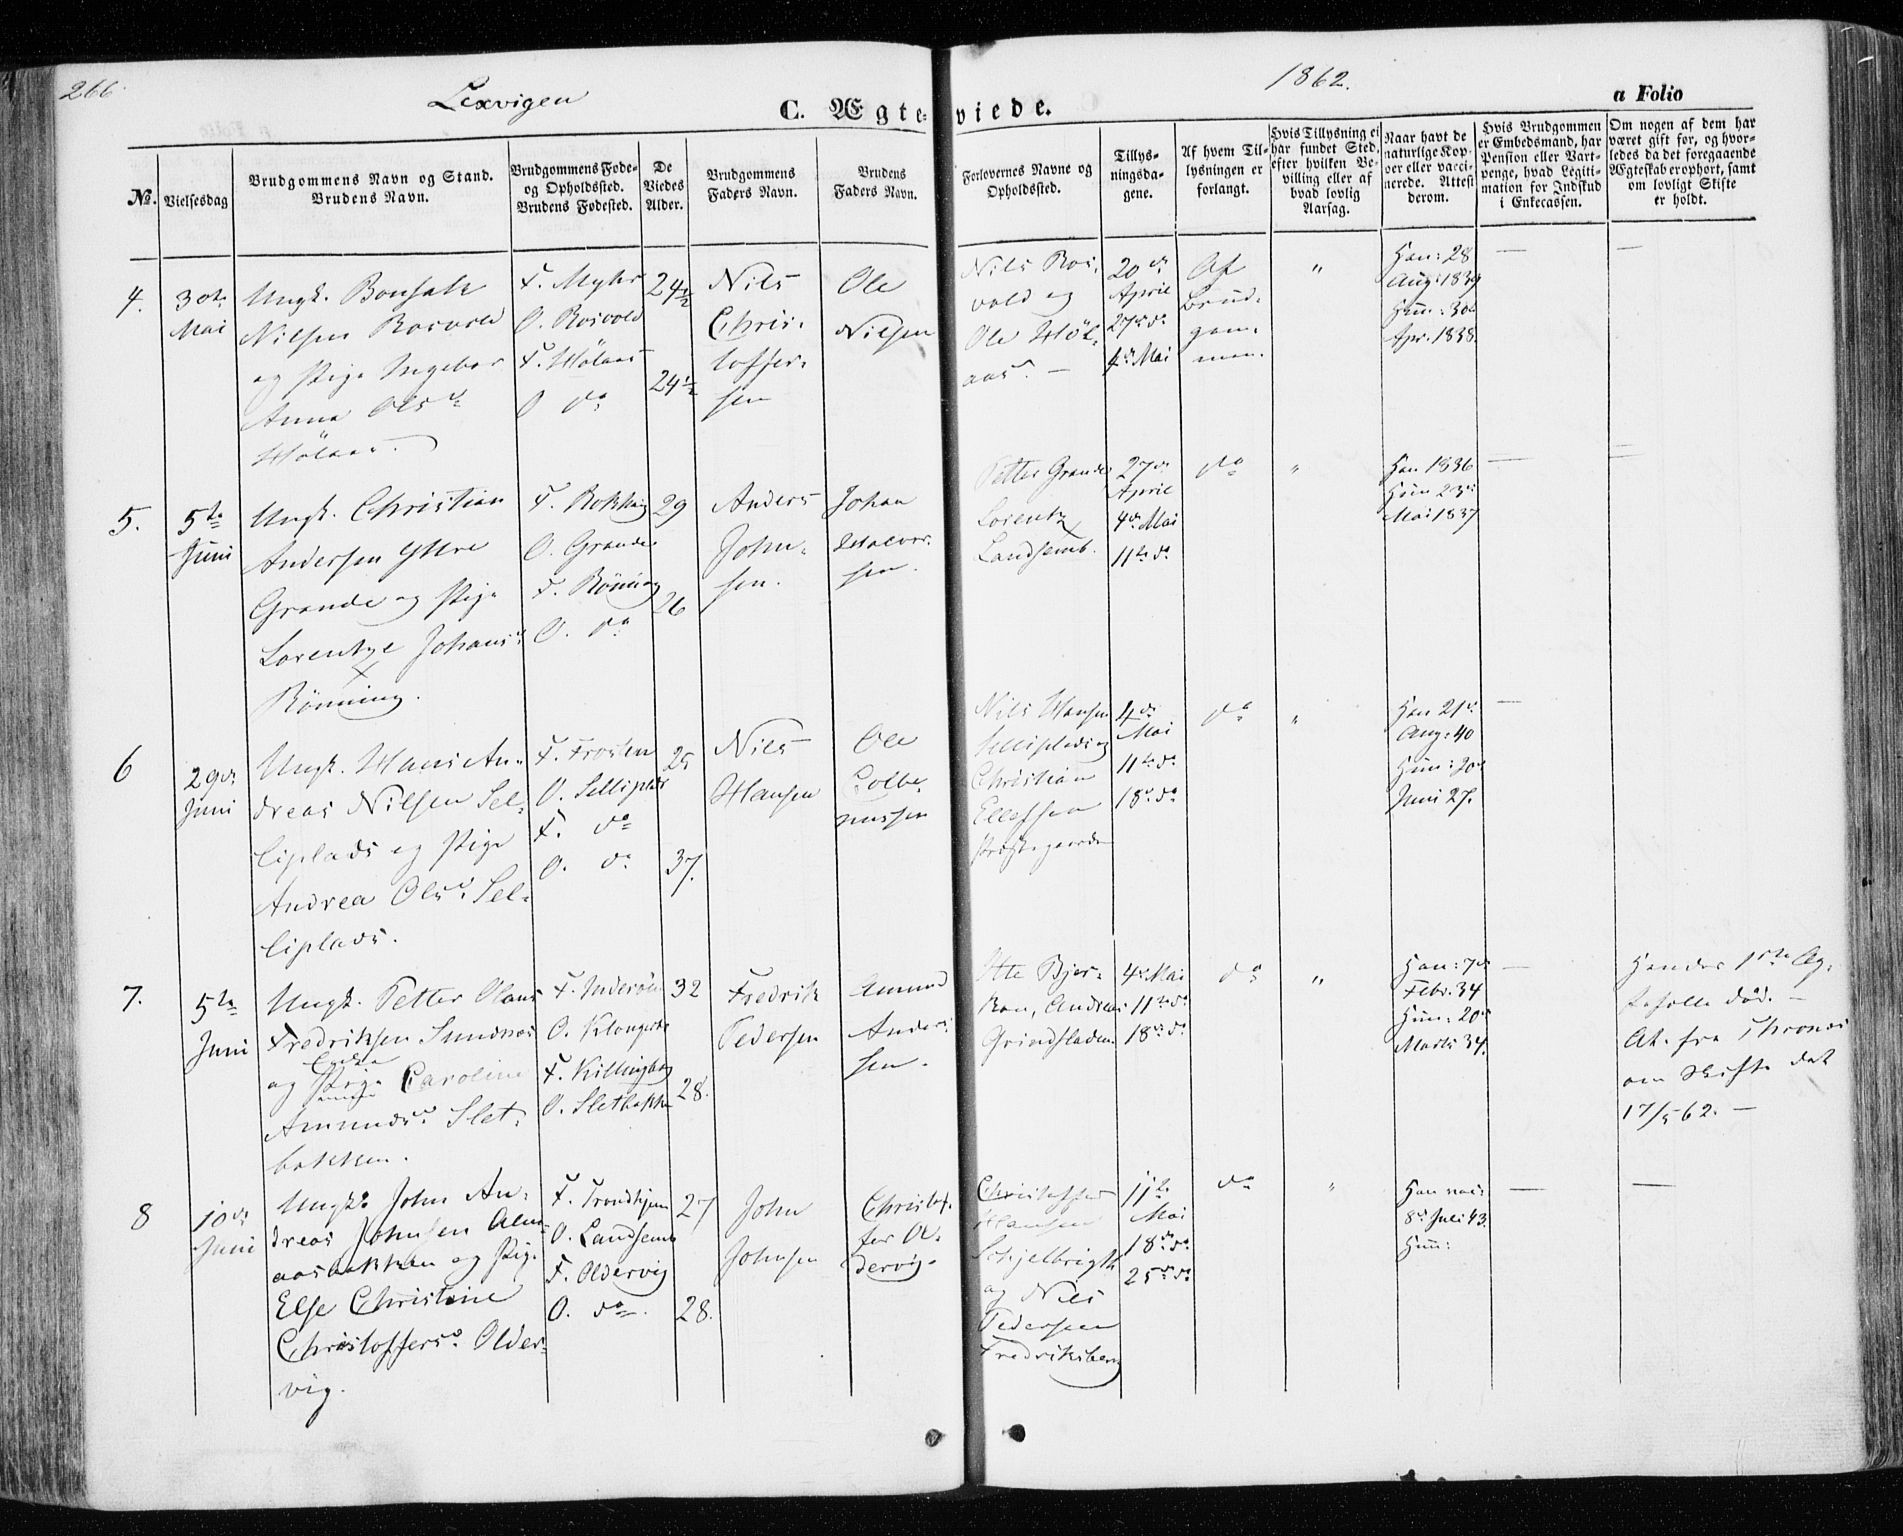 266
Lexvigen
1862.
C. Ægte-
viede.
a Folio
No.
Vielsesdag
Brudgommens Navn og Stand.
Brudens Navn.
Brudgommens Føde-
og Opholdssted.
Brudens Fødested.
De
Viedes
Alder.
Brudgommens
Faders Navn.
Brudens
Faders Navn.
Forlovernes Navne og
Opholdssted.
Tillys-
ningsda-
gene.
Af hvem Til-
lysningen er
forlangt.
Hvis Tillysning ei
har fundet Sted,
efter hvilken Be-
villing eller af
hvad lovlig
Aarsag.
Naar havt de
naturlige Kop-
per eller vacci-
nerede. Attest
derom.
Hvis Brudgommen
er Embedsmand, har
Pension eller Vart-
penge, hvad Legiti-
mation for Indskud
i Enkecassen.
Om nogen af dem har
været gift før, og hvor-
ledes da det foregaaende
Ægteskab er ophørt, samt
om lovligt Skifte
er holdt.
4.
30te
Mai
Ungk.
Nilsen Rosvold
og Pige Ingebor
Anna Olsd.
Hölaas.
F. Myhr
O. Rosvold
F. Hölaas
O do
24½
24½
Nils
Chris-
toffer-
sen
Ole
Nilsen
Nils Ros-
vold og
Ole Höl-
aas. —
20de
April
27de do
4de Mai
Af
Brud-
gom-
men.
"
Han: 28
Aug: 1839
Hun: 30
Apr. 1838.
—
—
5.
5te
Juni
Ungk. Christian
Andersen Ytre
Grande og Pige
Lorentze Johansd.
Rönning.
F.
O. Grande
F. Rönning
O. do
29
26
Anders
John-
sen.
Johan
Halvor-
sen.
Petter Grande
Lorentz
Landsemb.
27de
April
4de Mai
11te do
do
"
Han 1836
Hun 23de
Mai 1837
—
—
6
29de
Juni
Ungk. Hans An-
dreas Nilsen Sel-
liplads og Pige
Andrea Olsd. Sel-
liplads.
F. Frosten
O. Selliplads
F. do
O. do
25
37.
Nils
Hansen
Ole
Colbe-
nussen
Nils Hansen
Selliplads og
Christian
Ellefsen
4de
Mai
11te do
18de do
do
"
Han 21de
Aug: 40
Hun: 20de
Juni 27.
—
7.
5te
Juni
Ungk. Petter Olaus
Fredriksen Sundnæs
og Pige Caroline
Enke
Amundsd. Slet-
bakken.
F. Inderöen
O.
F. Killingberg
O. Sletbakken
32
28.
Fredrik
Pedersen
Amund
Anders-
sen.
Andreas
4de Mai
11te do
18de do
do
"
Han: 7de
Febr. 34
Hun: 20de
Marts 34.
—
Hendes 1ste Æg-
tefælle död. —
At. fra
om Skifte dat
17/5 62. —
8
10de
Juni
Ungk. John An-
dreas Johnsen Alm-
aasbakken og Pige
Else Christine
Christoffersd. Older-
vig.
F. Trondhjem
O. Landsem
F. Oldervig
O. do.
27
28.
John
Johnsen
Christof-
fer Ol-
dervig.
Christoffer
Hansen
og Nils
Pedersen
Fredriksberg
11te
Mai
18de do
25de do
do
"
Han vac:
8de Juli 43.
Hun:
—
—